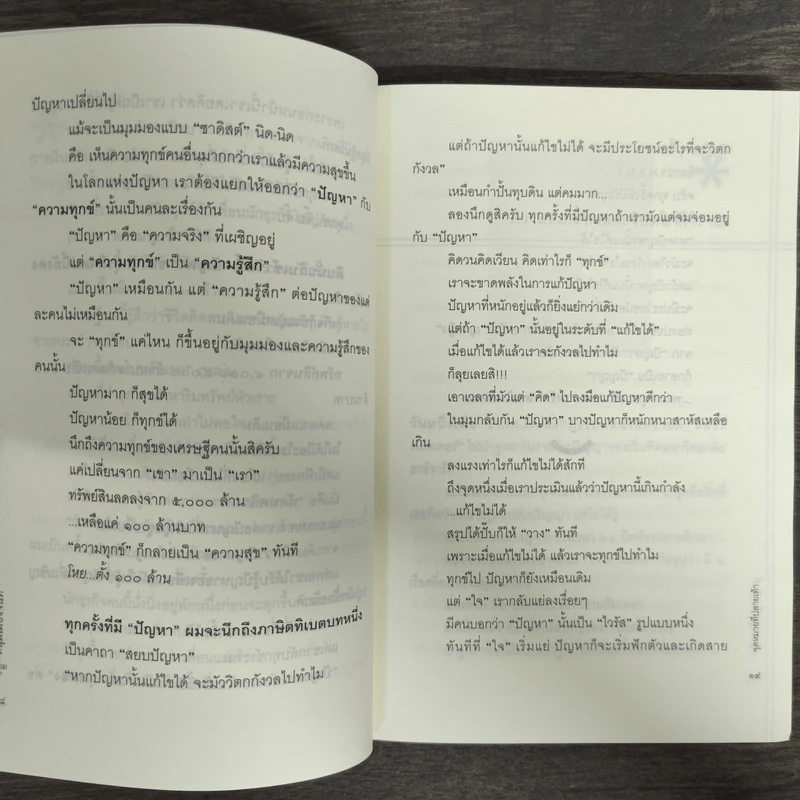 ปัญหาเปลี่ยนไป
แม้จะเป็นมุมมองแบบ “ซาดิสต์” นิด-นิด
คือ เห็นความทุกข์คนอื่นมากกว่าเราแล้วมีความสุขขึ้น
ในโลกแห่งปัญหา เราต้องแยกให้ออกว่า “ปัญหา” กับ
“ความทุกข์” นั้นเป็นคนละเรื่องกัน
“ปัญหา” คือ “ความจริง” ที่เผชิญอยู่
แต่ “ความทุกข์” เป็น “ความรู้สึก”
“ปัญหา” เหมือนกัน แต่ “ความรู้สึก” ต่อปัญหาของแต่
ละคนไม่เหมือนกัน
จะ “ทุกข์” แค่ไหน ก็ขึ้นอยู่กับมุมมองและความรู้สึกของ
คนนั้น
ปัญหามาก ก็สุขได้
ปัญหาน้อย ก็ทุกข์ได้
นึกถึงความทุกข์ของเศรษฐีคนนั้นสิครับ
แค่เปลี่ยนจาก “เขา” มาเป็น “เรา”
ทรัพย์สินลดลงจาก ๕,๐๐๐ ล้าน
...เหลือแค่ ๑๐๐ ล้านบาท
“ความทุกข์” ก็กลายเป็น “ความสุข” ทันที
โหย...ตั้ง ๑๐๐ ล้าน
ทุกครั้งที่มี “ปัญหา” ผมจะนึกถึงภาษิตทิเบตบทหนึ่ง
เป็นคาถา “สยบปัญหา”
“หากปัญหานั้นแก้ไขได้ จะมัววิตกกังวลไปทำไม
แต่ถ้าปัญหานั้นแก้ไขไม่ได้ จะมีประโยชน์อะไรที่จะวิตก
กังวล”
เหมือนกำปั้นทุบดิน แต่คมมาก...
ลองนึกดูสิครับ ทุกครั้งที่มีปัญหาถ้าเรามัวแต่จมจ่อมอยู่
กับ “ปัญหา”
คิดวนคิดเวียน คิดเท่าไรก็ “ทุกข์”
เราจะขาดพลังในการแก้ปัญหา
ปัญหาที่หนักอยู่แล้วก็ยิ่งแย่กว่าเดิม
แต่ถ้า “ปัญหา” นั้นอยู่ในระดับที่ “แก้ไขได้”
เมื่อแก้ไขได้แล้วเราจะกังวลไปทำไม
ก็ลุยเลยสิ!!!
เอาเวลาที่มัวแต่ “คิด” ไปลงมือแก้ปัญหาดีกว่า
ในมุมกลับกัน “ปัญหา” บางปัญหาก็หนักหนาสาหัสเหลือ
เกิน
ลงแรงเท่าไรก็แก้ไขไม่ได้สักที
ถึงจุดหนึ่งเมื่อเราประเมินแล้วว่าปัญหานี้เกินกำลัง
...แก้ไขไม่ได้
สรุปได้ปั๊บก็ให้ “วาง” ทันที
เพราะเมื่อแก้ไขไม่ได้ แล้วเราจะทุกข์ไปทำไม
ทุกข์ไป ปัญหาก็ยังเหมือนเดิม
แต่ “ใจ” เรากลับแย่ลงเรื่อยๆ
มีคนบอกว่า “ปัญหา” นั้นเป็น “ไวรัส” รูปแบบหนึ่ง
ทันทีที่ “ใจ” เริ่มแย่ ปัญหาก็จะเริ่มฟักตัวและเกิดสาย
จุดหมายที่ปลายเท้า
๑๙